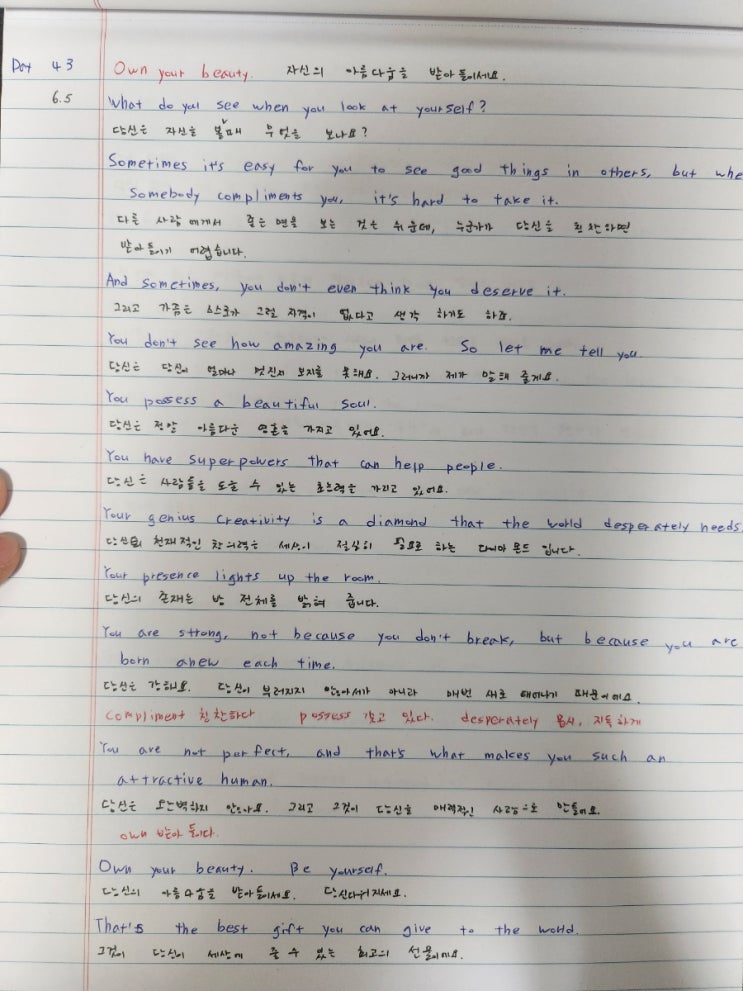 Day 43 Own your beauty. 자신의 아름다움을 받아들이세요.
6.5 What do you see when you look at yourself?
당신은 자신을 볼 때 무엇을 보나요?
Sometimes it's easy for you to see good things in others, but whe
somebody compliments you, it's hard to take it.
다른 사람에게서 좋은 면을 보는 것은 쉬운데, 누군가가 당신을 칭찬하면
받아들이기 어렵습니다.
And sometimes, you don't even think you deserve it.
그리고 가끔은 스스로가 그럴 자격이 없다고 생각 하기도 하죠.
You don't see how amazing you are. So let me tell you.
당신은 당신이 얼마나 멋진지 보지를 못해요. 그러니까 제가 말해 줄게요.
You possess a beautiful soul.
당신은 정말 아름다운 영혼을 가지고 있어요.
You have superpowers that can help people.
당신은 사람들을 도울 수 있는 초능력을 가지고 있어요.
Your genius creativity is a diamond that the world desperately needs.
당신의 천재적인 창의력은 세상이 절실히 필요로 하는 다이아몬드 입니다.
Your presence lights up the room.
당신의 존재는 방 전체를 밝혀 줍니다.
You are strong, not because you don't break, but because you are
born anew each time.
당신은 강해요. 당신이 부러지지 않아서가 아니라 매번 새로 태어나기 때문이에요.
compliment 칭찬하다 possess 갖고 있다. desperately 몹시, 지독하게
You are not perfect, and that's what makes you such an
attractive human.
당신은 완벽하지 않아요. 그리고 그것이 당신을 매력적인 사람으로 만들어요.
own 받아들이다.
Own your beauty. Be yourself.
당신의 아름다움을 받아들이세요. 당신다워지세요.
That's the best gift you can give to the world.
그것이 당신이 세상에 줄 수 있는 최고의 선물이에요.